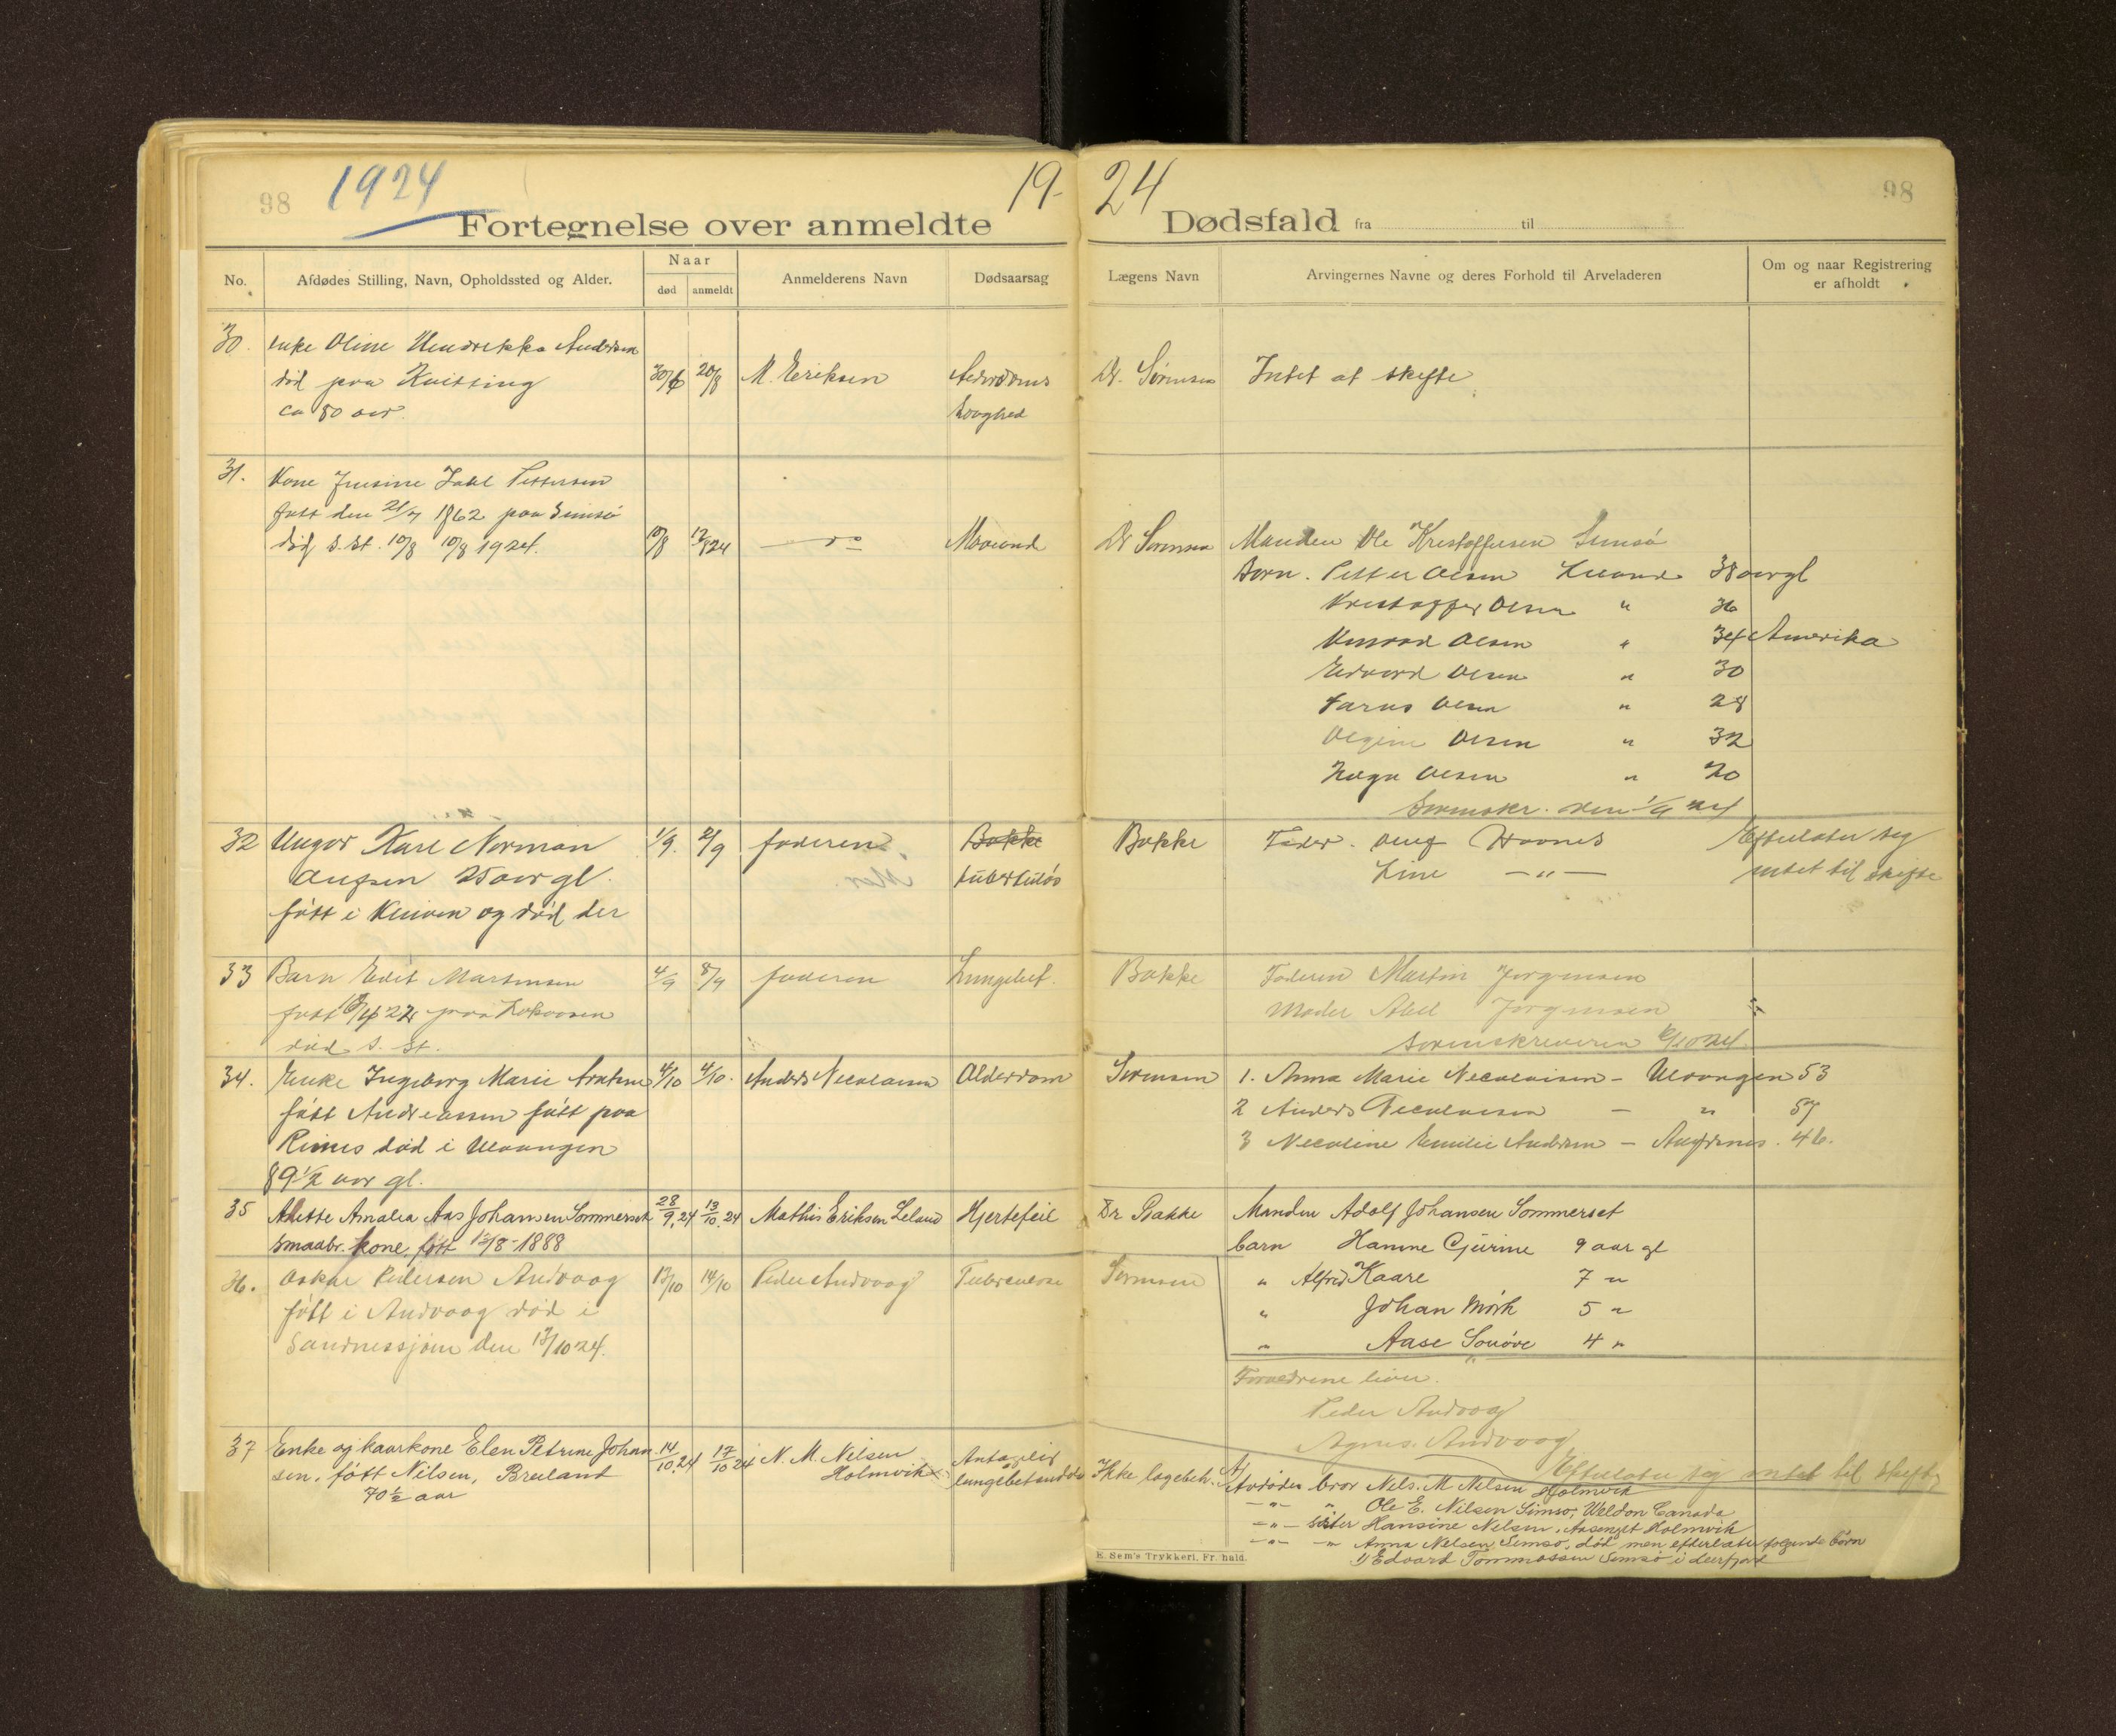 98 1924 19-24 98
Fortegnelse over anmeldte Dødsfald fra til
No.
Afdødes Stilling, Navn, Opholdssted og Alder.
Naar
død
anmeldt
Anmelderens Navn
Dødsaarsag
Lægens Navn
Arvingernes Navne og deres Forhold til Arveladeren
Om og naar Registrering
er afholdt
30. Enke Oline Hendrikka Andersen
død paa
ca 80 aar.
30/6 20/8 M. Eriksen
Dr. Sørensen Intet at skifte
31. Kone Jensine Pettersen
født den 21/7 1862 paa Simsø
død s. st. 10/8 10/8 1924.
10/8
Dr Sørensen Manden Ole Kristoffersen Simsø
Børn. Petter Olsen Leland 38 aar gl
Kristoffer Olsen " 36
Konrad Olsen " 34 Amerika
Edvard Olsen " 30
Olsen " 28
Olsen " 32
Olsen " 20
Sorenskr. den 1/9 24
32 Ungar Karl Norman
25 aar gl.
født i og død der
1/9. 2/9 faderen
Bakke
tuberkuløs
Bakke Fader.
Line — " —
Efterlater seg
intet til skifte
33 Barn Edit Martinsen
født paa
død s. st.
4/9 8/9 faderen Lungebet. Bakke
Faderen Martin Jørgensen
Moder Abel Jørgensen
Sorenskriveren 6/10 24.
34. Enke Ingeborg Marie
født Andreassen født paa
Rines død i Ulvangen
89 1/2 aar gl.
4/10 4/10. Anders Nicolaisen Alderdom Sørensen
1. Anna Marie Nicolaisen - Ulvangen 53
2 Anders Nicolaisen — " 57
3 Nicoline Emilie Andersen — 46.
35 Alette Amalia Aas Johansen Sommerset
smaabr. kone, født 1888
28/9.24 13/10.24 Mathis Eriksen Leland Hjertefeil Dr Bakke
Manden Adolf Johansen Sommerset
barn Hanne Gjurine 9 aar gl
" Alfred Kaare 7 "
" Johan Mörk 5 "
" Aase Sonöve 4 "
36. Oskar Pedersen Andvaag
født i Andvaag død i
Sandnessjøen den 13/10 24.
13/10 14/10 Peder Andvaag Tuberculose Sørensen
Foreldrene lever.
Peder Andvaag
Agnes. Andvaag
Efterlater seg intet til skifte
37 Enke og kaarkone Elen Petrine Johan-
sen, født Nilsen, Breiland
70 1/2 aar
14/10.24 17/10 24 N. M. Nilsen
Holmvik
Antagelig
lungebetændelse
Ikke lægebeh.
Avdødes bror Nels. M Nelsen Holmvik
— " — " Ole E. Nilsen Simsø, Weldon Canada
— " — søster Hansine Nelsen, Holmvik
— " — " Anna Nelsen Simsø, død men efterlater følgende börn
1) Edvard Tommassen Simsø i Leirfjord
E. Sem's Trykkeri, Fr.hald.